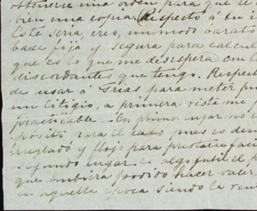 obtenerse una orden para que se
bien una copia. Respecto á su
Este sería, creo, un modo barato
base fija y segura para calcul
que es lo que me desespera con l
discordantes que tengo. Respec
de usar á Srias para meter
un litigio, a primera vista me
practicable. En primer lugar no
pósito para el caso pues es dem
arreglado y flojo para prestarse
segundo lugar es algo futil el p
que hubiera podido hacer valer
en aquella época siendo la ven